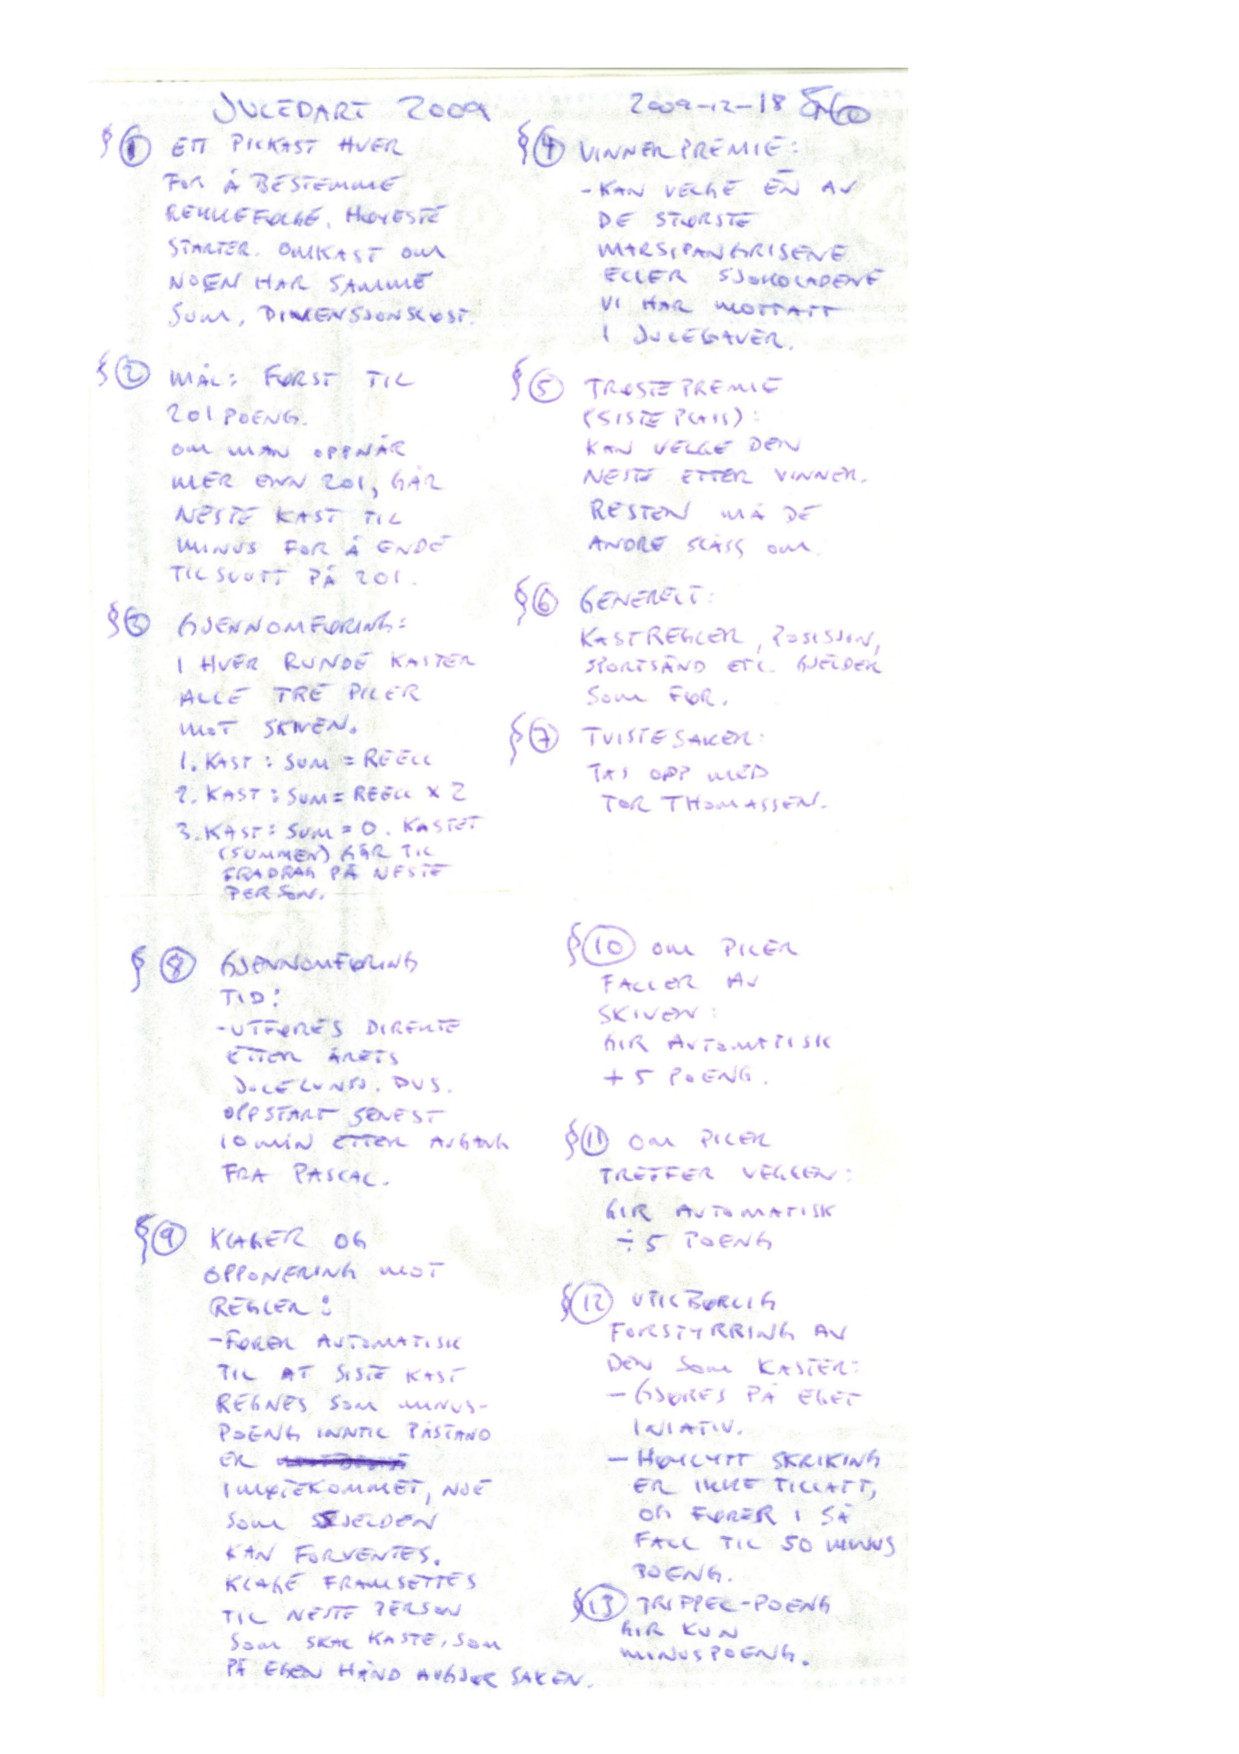 JULEDART 2009
2009-12-18
§ 1 ETT PILKAST HVER
FOR Å BESTEMME
REKKEFØLGE. HØYESTE
STARTER. OMKAST OM
NOEN HAR SAMME
SUM,
§ 2 MÅL: FØRST TIL
201 POENG.
OM MAN OPPNÅR
MER ENN 201, GÅR
NESTE KAST TIL
MINUS FOR Å ENDE
TIL SLUTT PÅ 201.
§ 3 GJENNOMFØRING:
I HVER RUNDE KASTER
ALLE TRE PILER
MOT SKIVEN.
1. KAST: SUM = REELL
2. KAST: SUM = REELL X 2
3. KAST: SUM = 0. KASTET
(SUMMEN) GÅR TIL
FRADRAG PÅ NESTE
PERSON.
§ 4 VINNERPREMIE:
- KAN VELGE ÉN AV
DE STØRSTE
MARSIPANGRISENE
ELLER SJOKOLADENE
VI HAR MOTTATT
I JULEGAVER.
§ 5 TRØSTEPREMIE
(SISTE PLASS):
KAN VELGE DEN
NESTE ETTER VINNER.
RESTEN MÅ DE
ANDRE SLÅSS OM.
§ 6 GENERELT:
KASTREGLER, POSISJON,
SPORTSÅND ETC. GJELDER
SOM FØR.
§ 7 TVISTESAKER:
TAS OPP MED
TOR THOMASSEN.
§ 8 GJENNOMFØRING
TID:
- UTFØRES DIREKTE
ETTER ÅRETS
JULELUNSJ. DVS.
OPPSTART SENEST
10 MIN ETTER AVGANG
FRA PASCAL.
§ 9 KLAGER OG
OPPONERING MOT
REGLER:
- FØRER AUTOMATISK
TIL AT SISTE KAST
REGNES SOM MINUS-
POENG INNTIL PÅSTAND
ER
IMØTEKOMMET, NOE
SOM SJELDEN
KAN FORVENTES.
KLAGE FRAMSETTES
TIL NESTE PERSON
SOM SKAL KASTE, SOM
PÅ EGEN HÅND AVGJØR SAKEN.
§ 10 OM PILER
FALLER AV
SKIVEN:
GIR AUTOMATISK
+ 5 POENG.
§ 11 OM PILER
TREFFER VEGGEN:
GIR AUTOMATISK
÷ 5 POENG
§ 12 UTILBØRLIG
FORSTYRRING AV
DEN SOM KASTER:
- GJØRES PÅ EGET
INIATIV.
- HØYLYTT SKRIKING
ER IKKE TILLATT,
OG FØRER I SÅ
FALL TIL 50 MINUS
POENG.
§ 13 TRIPPEL-POENG
GIR KUN
MINUSPOENG.